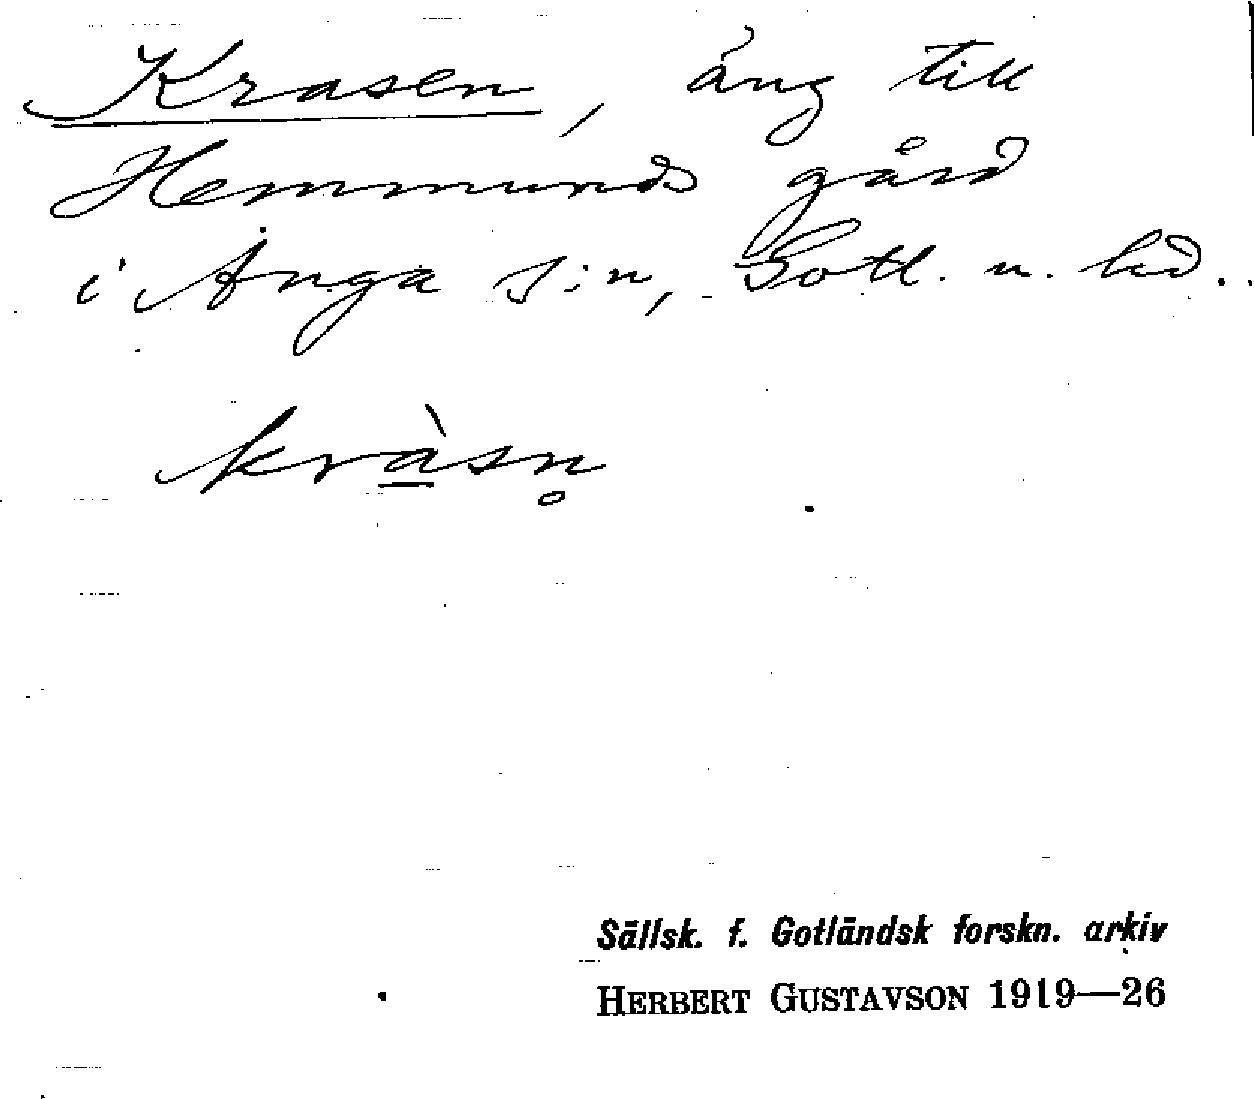 Krasen, äng till
Hemmunds gård
i Anga s:n, Gotl. n. hd.
kràsn̥
Sällsk. f. Gotländsk forskn. arkiv
HERBERT GUSTAVSON 1919—26